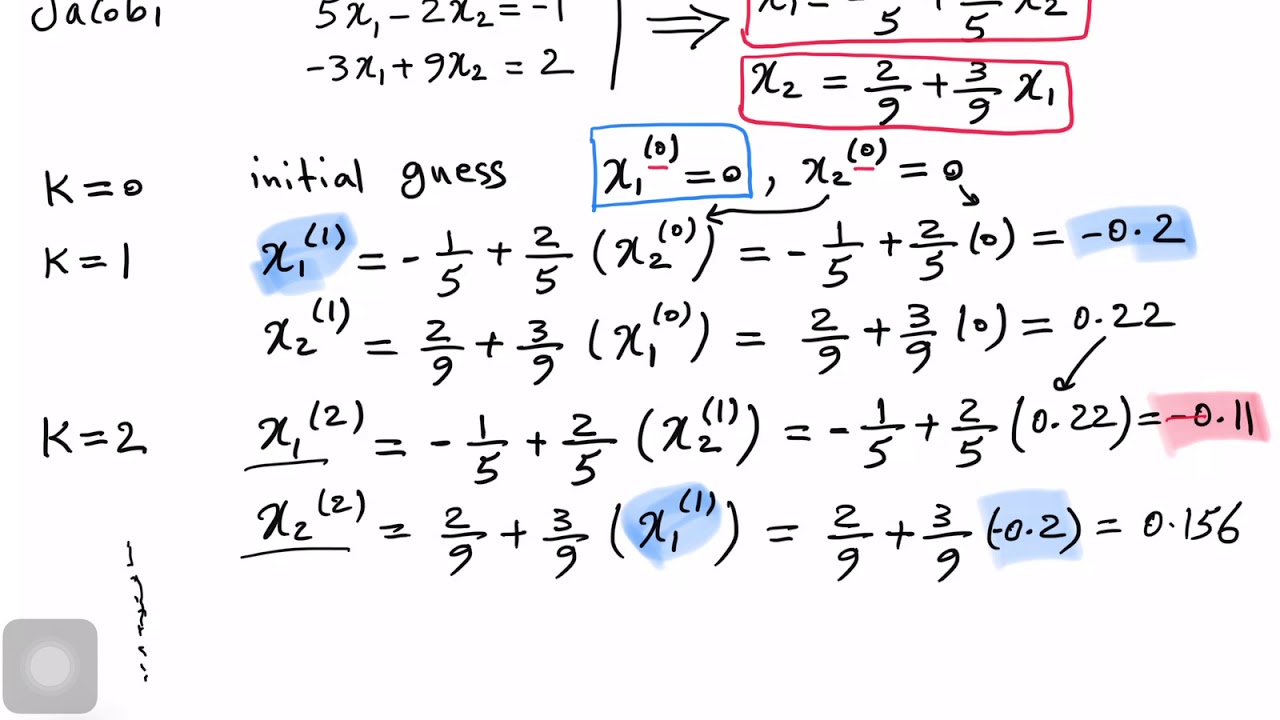 Jacobi 5x₁ - 2x₂ = -1 ⟹ x₁ = -1/5 + 2/5 x₂
-3x₁ + 9x₂ = 2 x₂ = 2/9 + 3/9 x₁
K=0 initial guess x₁⁽⁰⁾ = 0, x₂⁽⁰⁾ = 0
K=1 x₁⁽¹⁾ = - 1/5 + 2/5 (x₂⁽⁰⁾) = - 1/5 + 2/5 (0) = -0.2
x₂⁽¹⁾ = 2/9 + 3/9 (x₁⁽⁰⁾) = 2/9 + 3/9 (0) = 0.22
K=2 x₁⁽²⁾ = - 1/5 + 2/5 (x₂⁽¹⁾) = - 1/5 + 2/5 (0.22) = -0.11
x₂⁽²⁾ = 2/9 + 3/9 (x₁⁽¹⁾) = 2/9 + 3/9 (-0.2) = 0.156